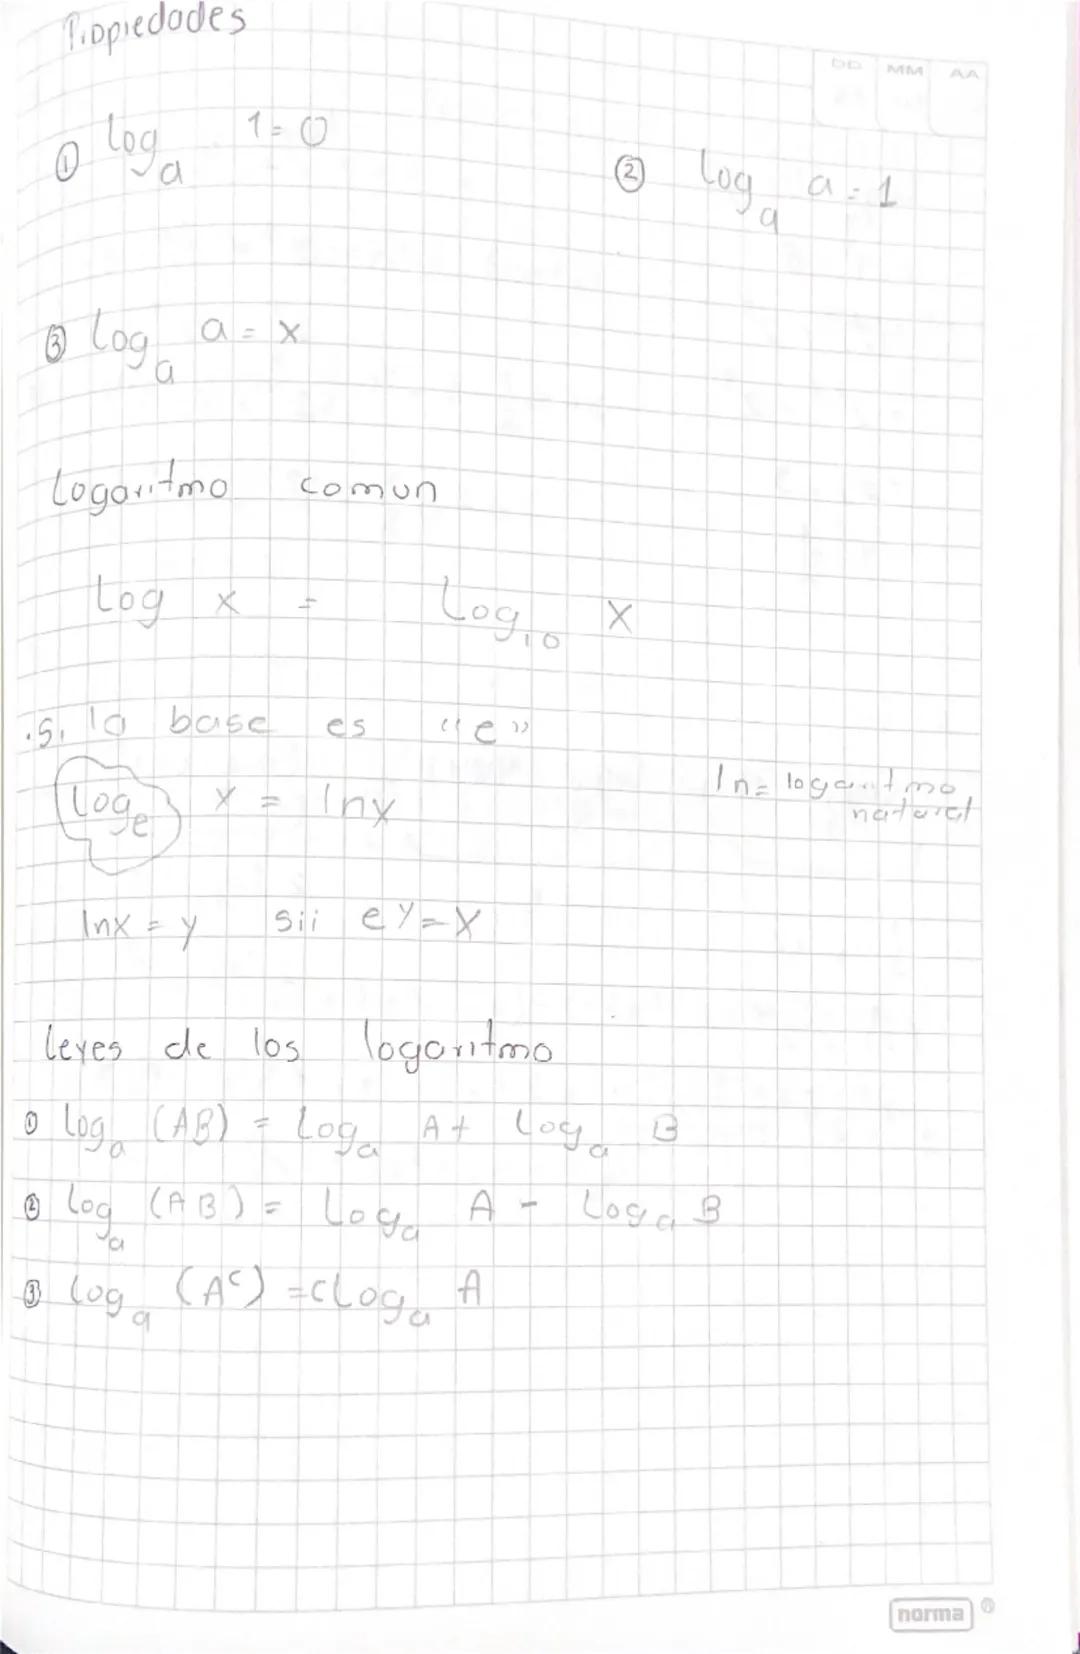 Propiedades
DD MM AA
① log_a 1 = 0
② log_a a = 1
③ log_a a = x
Logaritmo comun
Log x = Log_10 X
.Si la base es "e"
Log_e x = lnx
ln = logaritmo natural
lnx = y sii e^y = x
leyes de los logaritmo
① log_a (AB) = Log_a A + Log_a B
② log_a (AB) = Log_a A - Log_a B
③ log_a (A^c) = cLog_a A
norma®